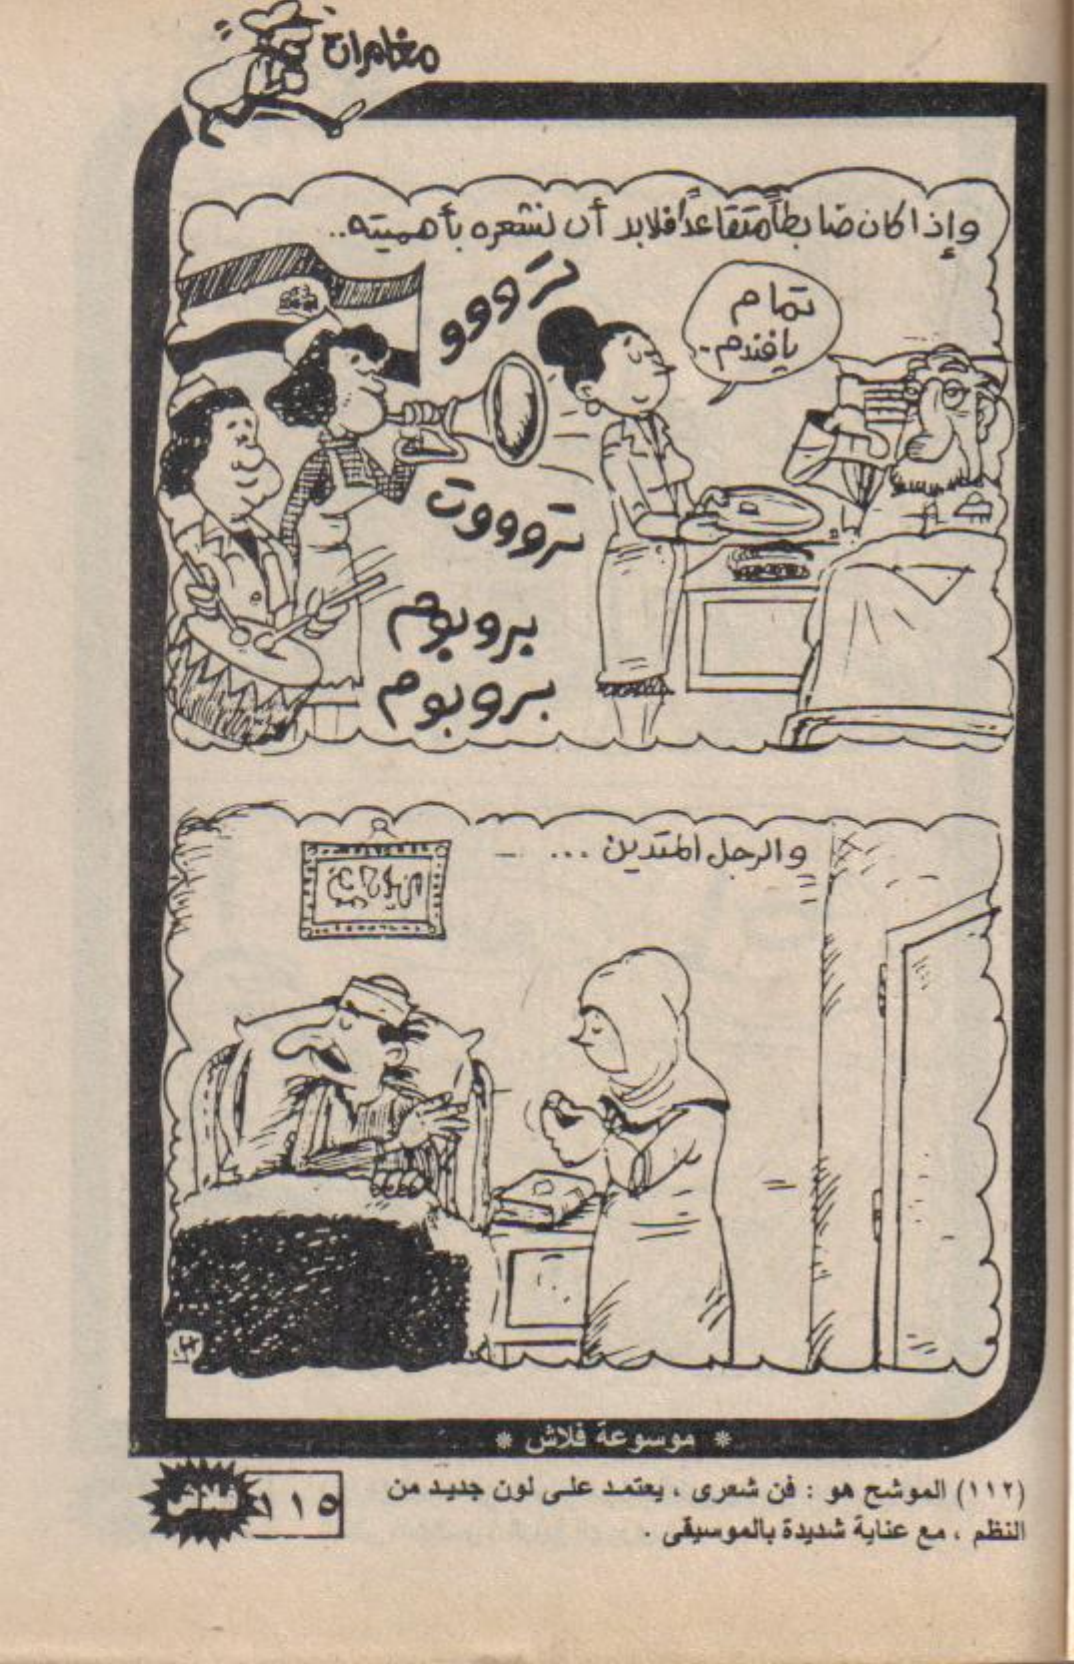 مغامرات
وإذا كان ضابطاً متقاعداً فلابد أن نشعره بأهميته..
تمام
يافندم..
تروووو
تروووت
بروبوم
بروبوم
والرجل المتدين ...
* موسوعة فلاش *
(١١٢) الموشح هو : فن شعرى ، يعتمد على لون جديد من
النظم ، مع عناية شديدة بالموسيقى .
١١٥
فلاش